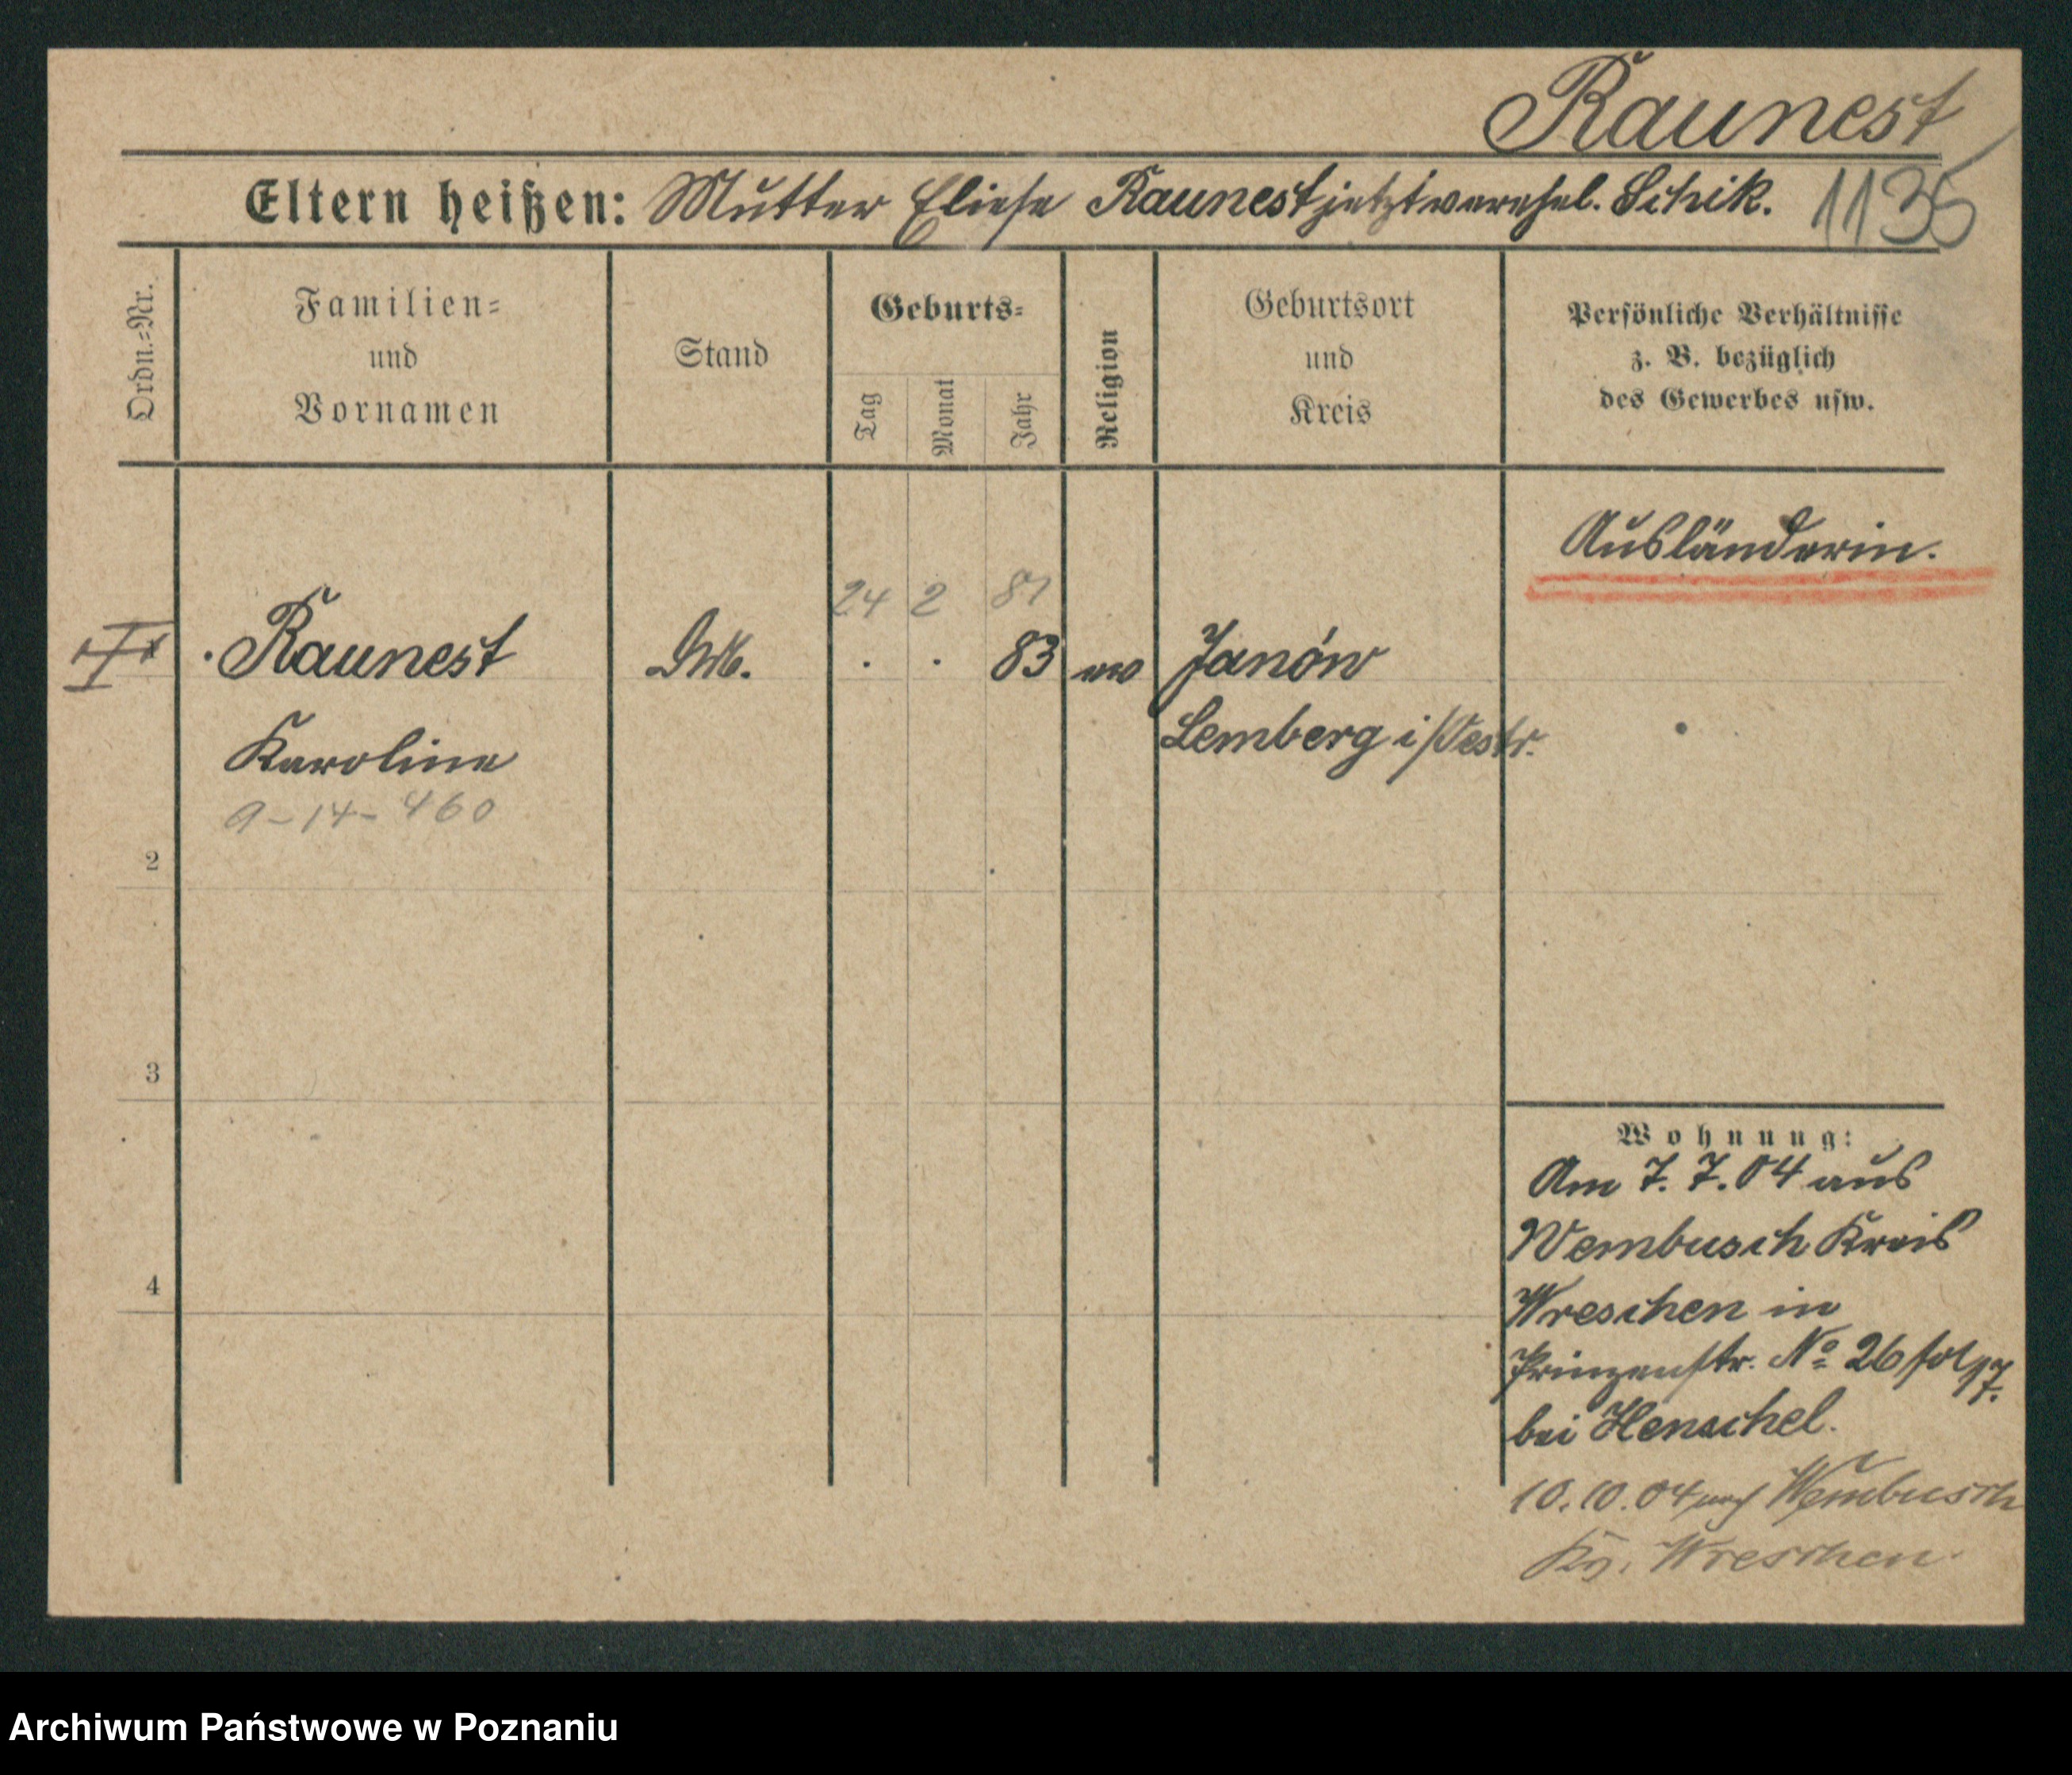 Raunest
Eltern heißen: Mutter Eliese Raunest jetzt verehel. Schik. 1135
Ordn.=Nr.
Familien=
und
Vornamen
Stand
Geburts=
Tag
Monat
Jahr
Religion
Geburtsort
und
Kreis
Persönliche Verhältnisse
z. B. bezüglich
des Gewerbes usw.
Ausländerin.
24 2 81
Raunest . . 83 ev Janów
Karoline Lemberg i/Oestr.
9-14-460
2
3
4
Wohnung:
Am 7. 7. 04 aus
Wembusch Kreis
Wreschen in
Prinzenstr. No 26
bei Henschel.
10. 10. 04 nach Wembusch
Kr. Wreschen
Archiwum Państwowe w Poznaniu